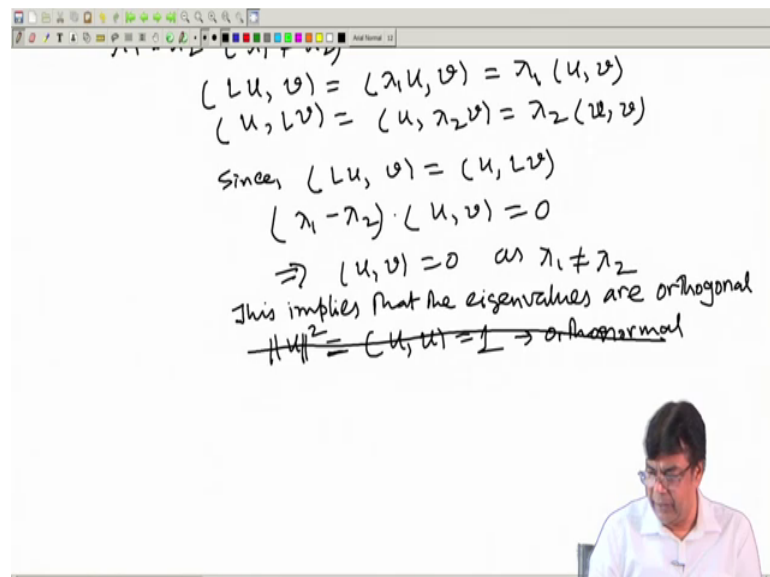 (Lu, v) = (λ₁u, v) = λ₁(u, v)
(u, Lv) = (u, λ₂v) = λ₂(u, v)
Since, (Lu, v) = (u, Lv)
(λ₁ - λ₂) · (u, v) = 0
⇒ (u, v) = 0 as λ₁ ≠ λ₂
This implies that the eigenvalues are orthogonal
||u||² = (u, u) = 1 → orthonormal